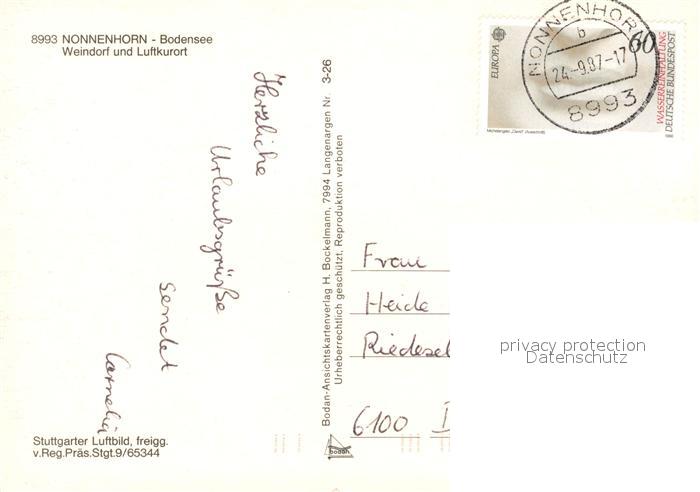 8993 NONNENHORN - Bodensee
Weindorf und Luftkurort
Herzliche
Urlaubsgrüße
sendet
Cornelia
Stuttgarter Luftbild, freigg.
v.Reg.Präs.Stgt.9/65344
Bodan-Ansichtskartenverlag H. Bockelmann, 7994 Langenargen Nr. 3-26
Urheberrechtlich geschützt. Reproduktion verboten
bodan
EUROPA
60
WASSERREINHALTUNG
DEUTSCHE BUNDESPOST
NONNENHORN
b
24.-9.87-17
8993
Frau
Heide
Riedesel
6100 D
privacy protection
Datenschutz